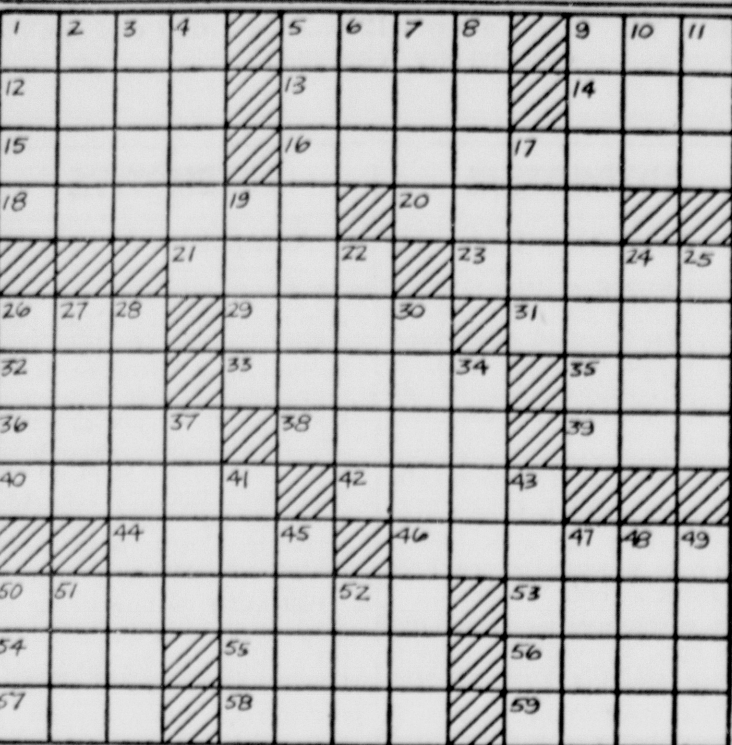 1 2 3 4 5 6 7 8 9 10 11
12 13 14
15 16 17
18 19 20
21 22 23 24 25
26 27 28 29 30 31
32 33 34 35
36 37 38 39
40 41 42 43
44 45 46 47 48 49
50 51 52 53
54 55 56
57 58 59